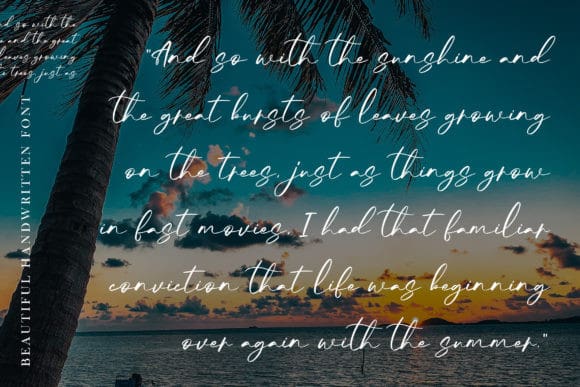 nd so with the
e and the great
leaves growing
he trees, just as
BEAUTIFUL HANDWRITTEN FONT
"And so with the sunshine and
the great bursts of leaves growing
on the trees, just as things grow
in fast movies, I had that familiar
conviction that life was beginning
over again with the summer."